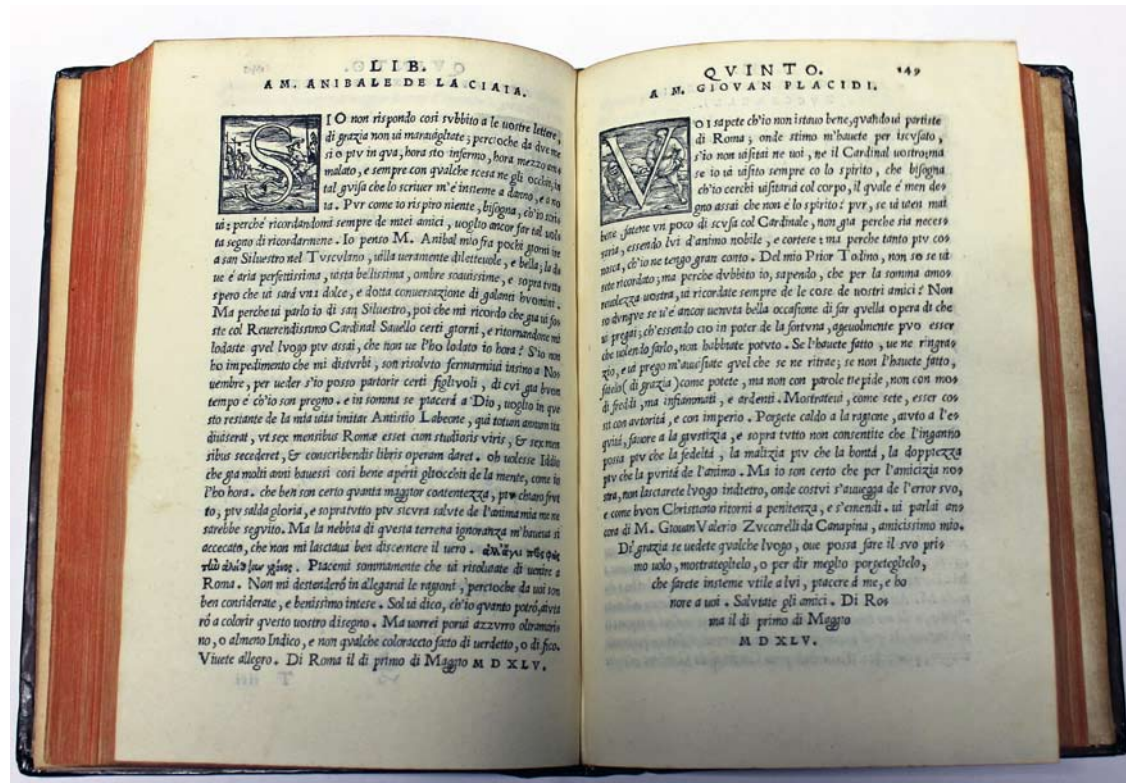 LIB.
A M. ANIBALE DE LA CIAIA.
SIO non rispondo cosi svbbito a le uostre lettere,
di grazia non ui marauigliate; percioche da dve me
si o piv in qva, hora sto infermo, hora mezzo am
malato, e sempre con qvalche scesa ne gli occhi, in
tal gvisa che lo scriuer m'è insieme a danno, e a no
ia. Pvr come io rispiro niente, bisogna, ch'io scriv
ui: perche' ricordandomi sempre de miei amici, uoglio ancor far tal vol
ta segno di ricordarmene. Io penso M. Anibal mio fra pochi giorni ire
a san Siluestro nel Tvscvlano, uilla ueramente diletteuole, e bella; la do
ue è aria perfettissima, uista bellissima, ombre soauissime, e sopra tvtto
spero che ui sará vna dolce, e dotta conuersazione di galanti hvomini.
Ma perche ui parlo io di san Siluestro, poi che mi ricordo che gia ui fo
ste col Reuerendissimo Cardinal Sauello certi giorni, e ritornandone mi
lodaste qvel lvogo piv assai, che non ue l'ho lodato io hora? S'io non
ho impedimento che mi distvrbi, son risolvto fermarmiui insino a No
uembre, per ueder s'io posso partorir certi figlivoli, di cvi gia bvon
tempo è ch'io son pregno. e in somma se piacerá a Dio, uoglio in qve
sto restante de la mia uita imitar Antistio Labeone, qui totum annum ita
diuiserat, vt sex mensibus Romæ esset cum studiosis viris, & sex men
sibus secederet, & conscribendis libris operam daret. oh uolesse Iddio
che gia molti anni hauessi cosi bene aperti gliocchi de la mente, come io
l'ho hora. che ben son certo qvanta maggior contentezza, piv chiaro frvt
to, piv salda gloria, e sopratvtto piv sicvra salvte de l'anima mia me ne
sarebbe segvito. Ma la nebbia di qvesta terrena ignoranza m'haueua si
accecato, che non mi lasciaua ben discernere il uero.
Piacemi sommamente che ui risoluiate di uenire a
Roma. Non mi destenderó in allegarui le ragioni, percioche da uoi son
ben considerate, e benissimo intese. Sol ui dico, ch'io qvanto potró, aivta
ró a colorir qvesto uostro disegno. Ma uorrei porui azzvrro oltramari
no, o almeno Indico, e non qvalche coloraccio fatto di uerdetto, o di fico.
Viuete allegro. Di Roma il di primo di Maggio M D XLV.
T iiii
QVINTO. 149
A M. GIOVAN PLACIDI.
VOI sapete ch'io non istauo bene, qvando ui partiste
di Roma; onde stimo m'hauete per iscvsato,
s'io non uisitai ne uoi, ne il Cardinal uostro; ma
se io ui uisito sempre co lo spirito, che bisogna
ch'io cerchi uisitarui col corpo, il qvale è men de=
gno assai che non è lo spirito? pvr, se ui uien mai
bene, fatene vn poco di scvsa col Cardinale, non gia perche sia neces=
saria, essendo lvi d'animo nobile, e cortese: ma perche tanto piv cono
nosca, ch'io ne tengo gran conto. Del mio Prior Tolino, non so se ui
sete ricordato, ma perche dvbbito io, sapendo, che per la somma amo=
reuolezza uostra, ui ricordate sempre de le cose de uostri amici? Non
so dvnqve se u'è ancor uenvta bella occasione di far qvella opera di che
ui pregai; ch'essendo cio in poter de la fortvna, ageuolmente pvo esser
che uolendo farlo, non habbiate potvto. Se l'hauete fatto, ue ne ringra=
zio, e ui prego m'auisiate qvel che se ne ritrae; se non l'hauete fatto,
fatelo (di grazia) come potete, ma non con parole tiepide, non con mo=
di freddi, ma infiammati, e ardenti. Mostrateui, come sete, esser co=
si con avtoritá, e con imperio. Porgete caldo a la ragione, aivto a l'e=
qvitá, fauore a la givstizia, e sopra tvtto non consentite che l'inganno
possa piv che la fedeltá, la malizia piv che la bontá, la doppiezza
piv che la pvritá de l'animo. Ma io son certo che per l'amicizia no=
stra, non lasciarete lvogo indietro, onde costvi s'aduegga de l'error svo,
e come bvon Christiano ritorni a penitenza, e s'emendi. ui parlai an=
cora di M. Giouan Valerio Zvccarelli da Canapina, amicissimo mio.
Di grazia se uedete qvalche lvogo, oue possa fare il svo pri=
mo uolo, mostrateglielo, o per dir meglio porgeteglielo,
che farete insieme vtile a lvi, piacere á me, e ho
nore a uoi. Salvtate gli amici. Di Ro=
ma il di primo di Maggio
M D XLV.